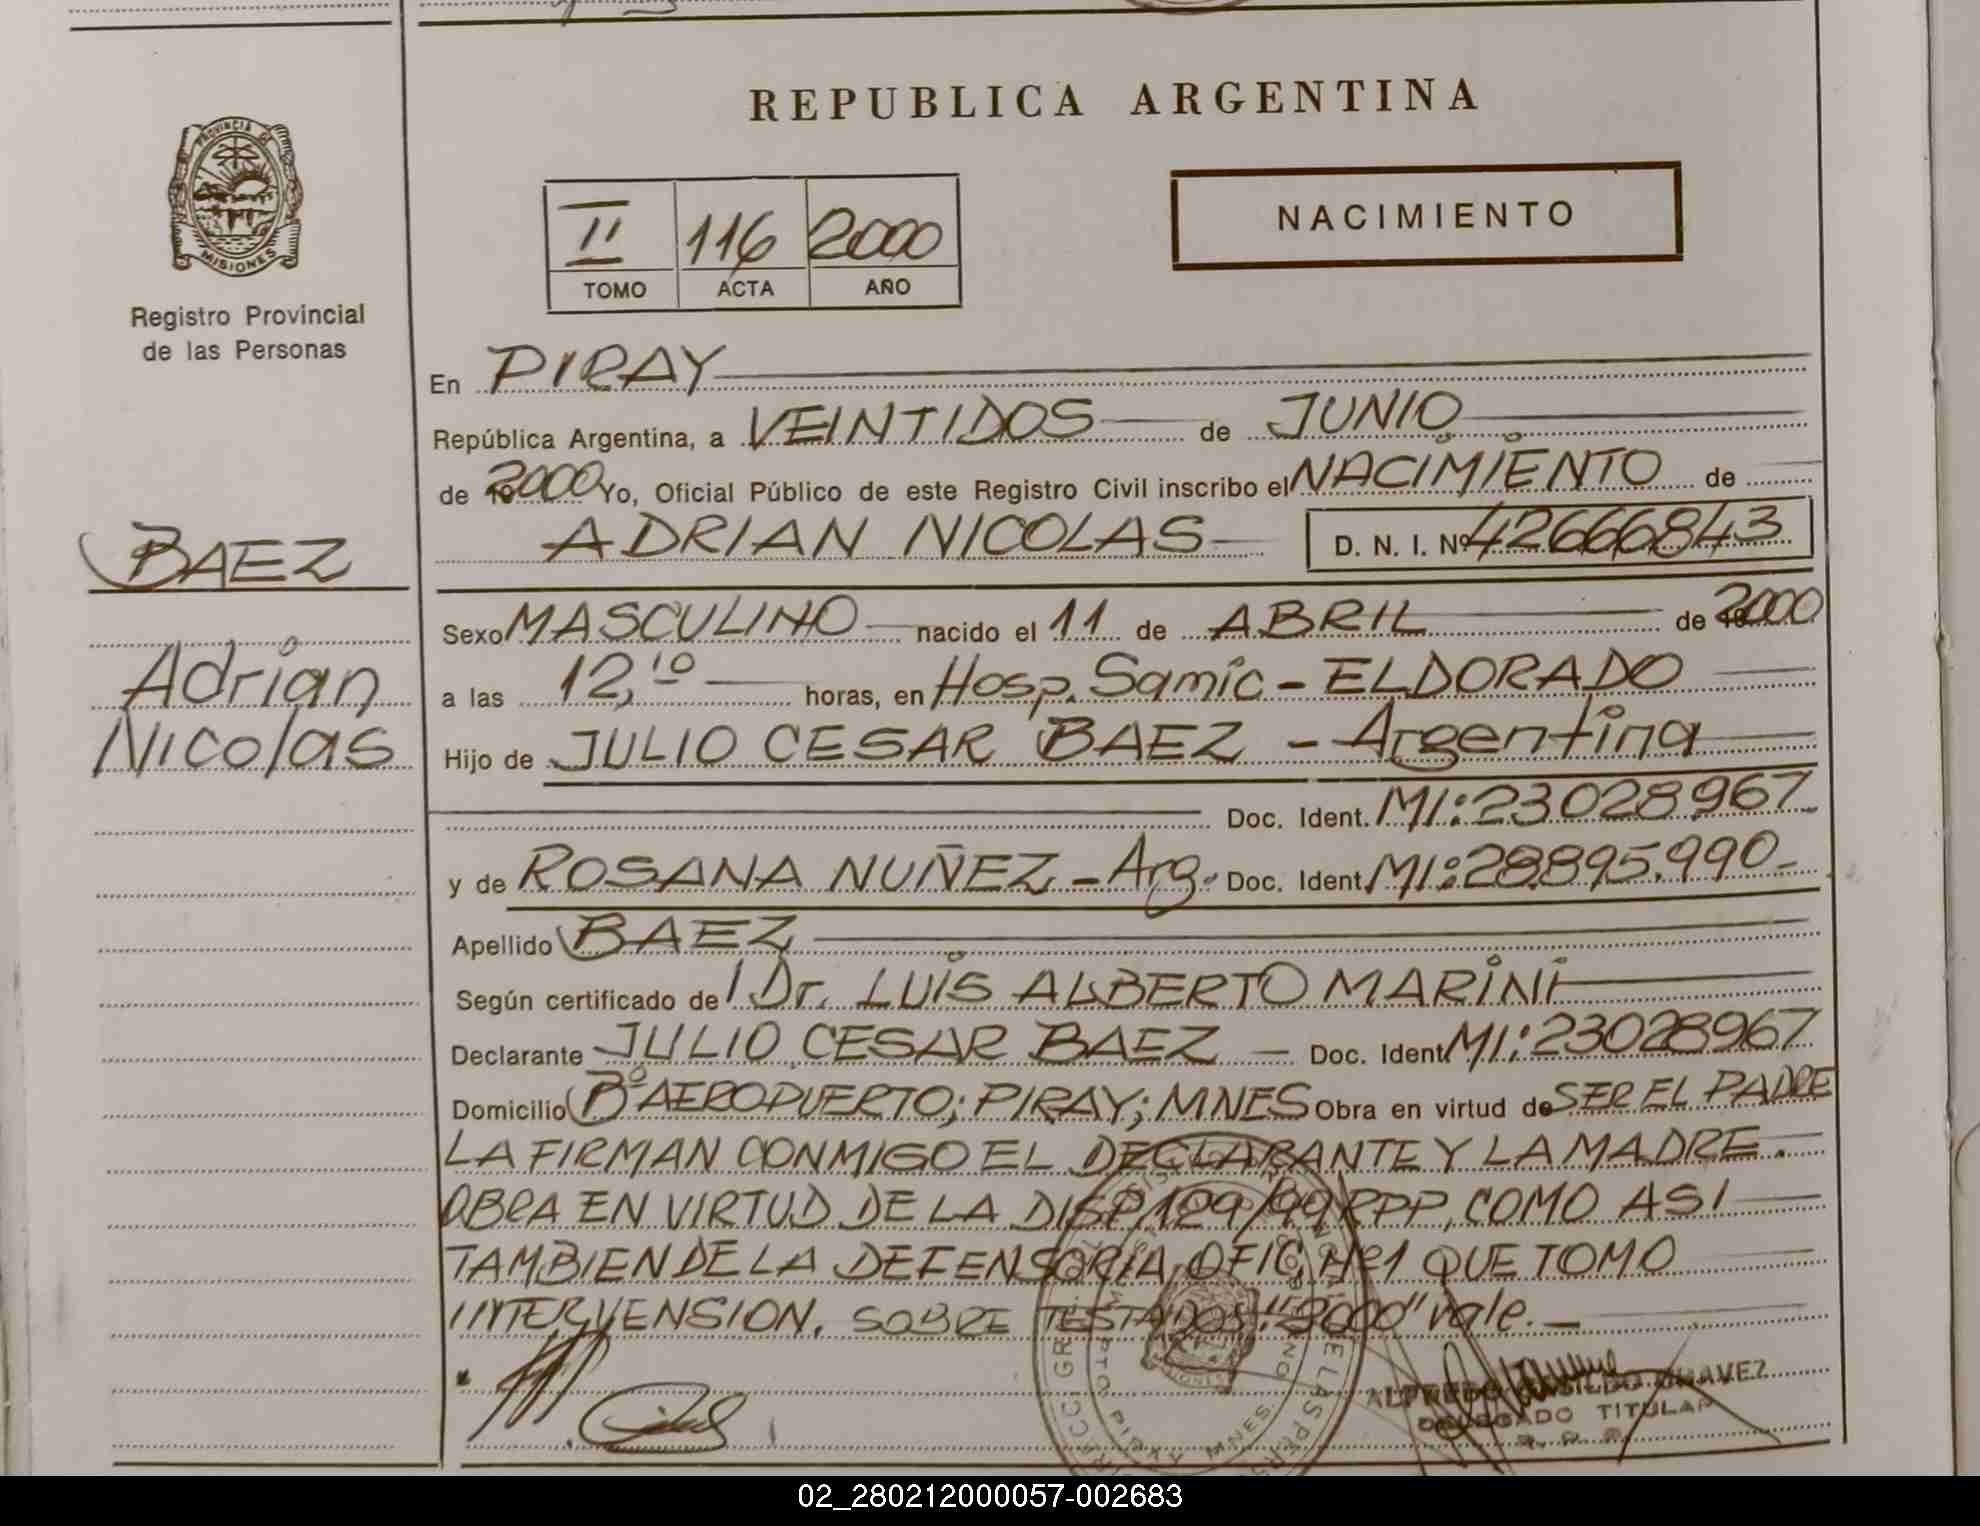 REPUBLICA ARGENTINA
PROVINCIA DE
MISIONES
Registro Provincial
de las Personas
II 116 2000
TOMO ACTA AÑO
NACIMIENTO
En PIRAY
República Argentina, a VEINTIDOS de JUNIO
de 2000 Yo, Oficial Público de este Registro Civil inscribo el NACIMIENTO de
BAEZ
ADRIAN NICOLAS D. N. I. Nº 42666843
Sexo MASCULINO nacido el 11 de ABRIL de 2000
Adrian
a las 12,10 horas, en Hosp. Samic - ELDORADO
Nicolas
Hijo de JULIO CESAR BAEZ - Argentina
Doc. Ident. MI: 23028967
y de ROSANA NUÑEZ - Arg. Doc. Ident. MI: 28.895.990-
Apellido BAEZ
Según certificado de Dr. LUIS ALBERTO MARINI
Declarante JULIO CESAR BAEZ - Doc. Ident MI: 23028967
Domicilio Bº AEROPUERTO; PIRAY; MNES Obra en virtud de SER EL PADRE
LA FIRMAN CONMIGO EL DECLARANTE Y LA MADRE.
OBRA EN VIRTUD DE LA DISP. 129/99 RPP, COMO ASI
TAMBIEN DE LA DEFENSORIA OFIC, Nº1 QUE TOMO
INTERVENSION. SOBRE TESTADOS: "2000" vale.
ALFREDO CHAVEZ
DELEGADO TITULAR
R. P. P.
02_280212000057-002683